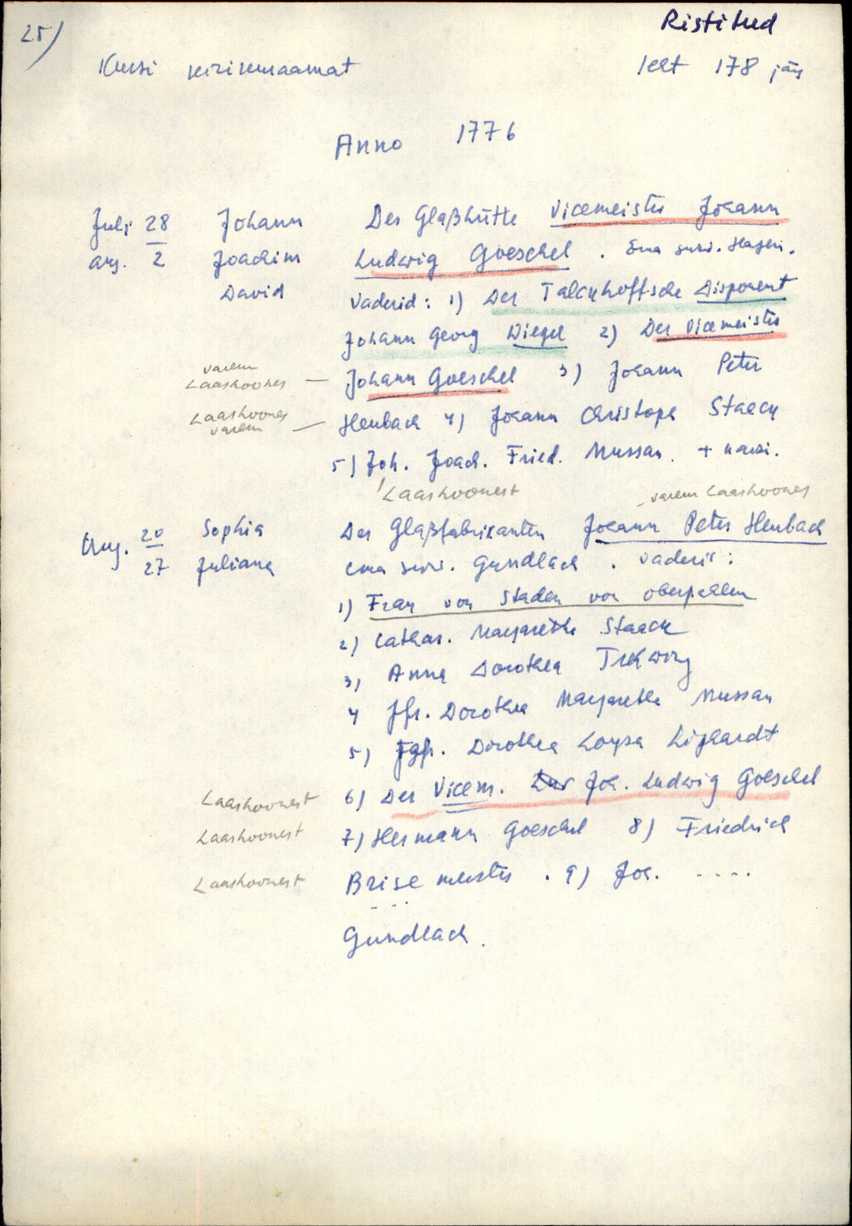 25)
Ristitud
Kursi kirikuraamat
leht 178 järg
Anno 1776
Juli 28 Johann Des Glaßhütte Vicemeister Johann
aug. 2 Joachim Ludwig Goeschel. Ema sünd. Hagen.
David Vaderid: 1) Der Talckhoffsche Disponent
Johann Georg Diegel 2) Der Vicemeister
varem
Laashoones — Johann Goeschel 3) Johann Peter
Laashoones
varem — Heubach 4) Johann Christoph Staeck
5) Joh. Joach. Fried. Mussan. +
Laashoonest
varem Laashoones
Aug. 20 Sophia Des Glaßfabrikanten Johann Peter Heubach
27 Juliana ema sünd. Gundlach. Vaderid:
1) Frau von Staden von Oberpahlen
2) Cathar. Margarethe Staeck
3) Anna Dorothea
4 Jfr. Dorothea Margaretha Mussan
5) Jgfr. Dorothea Loysa Liphardt
Laashoonest 6) Der Vicem. Joh. Ludwig Goeschel
Laashoonest 7) Hermann Goeschel 8) Friedrich
Laashoonest Brise meister. 9) Joh. ....
...
Gundlach.